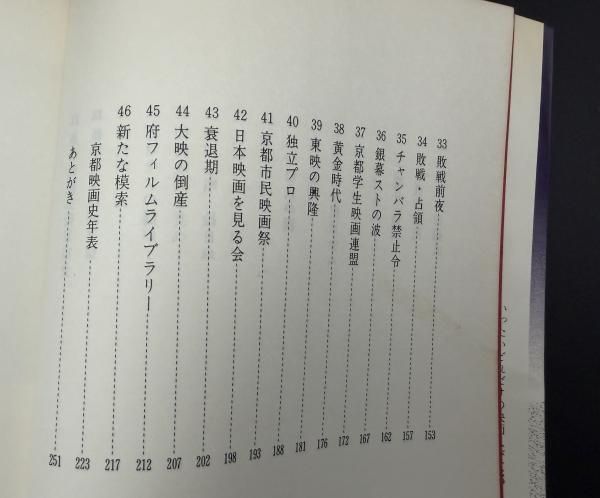 33 敗戦前夜 153
34 敗戦・占領 157
35 チャンバラ禁止令 162
36 銀幕ストの波 167
37 京都学生映画連盟 172
38 黄金時代 176
39 東映の興隆 181
40 独立プロ 188
41 京都市民映画祭 193
42 日本映画を見る会 198
43 衰退期 202
44 大映の倒産 207
45 府フィルムライブラリー 212
46 新たな模索 217
京都映画史年表 223
あとがき 251